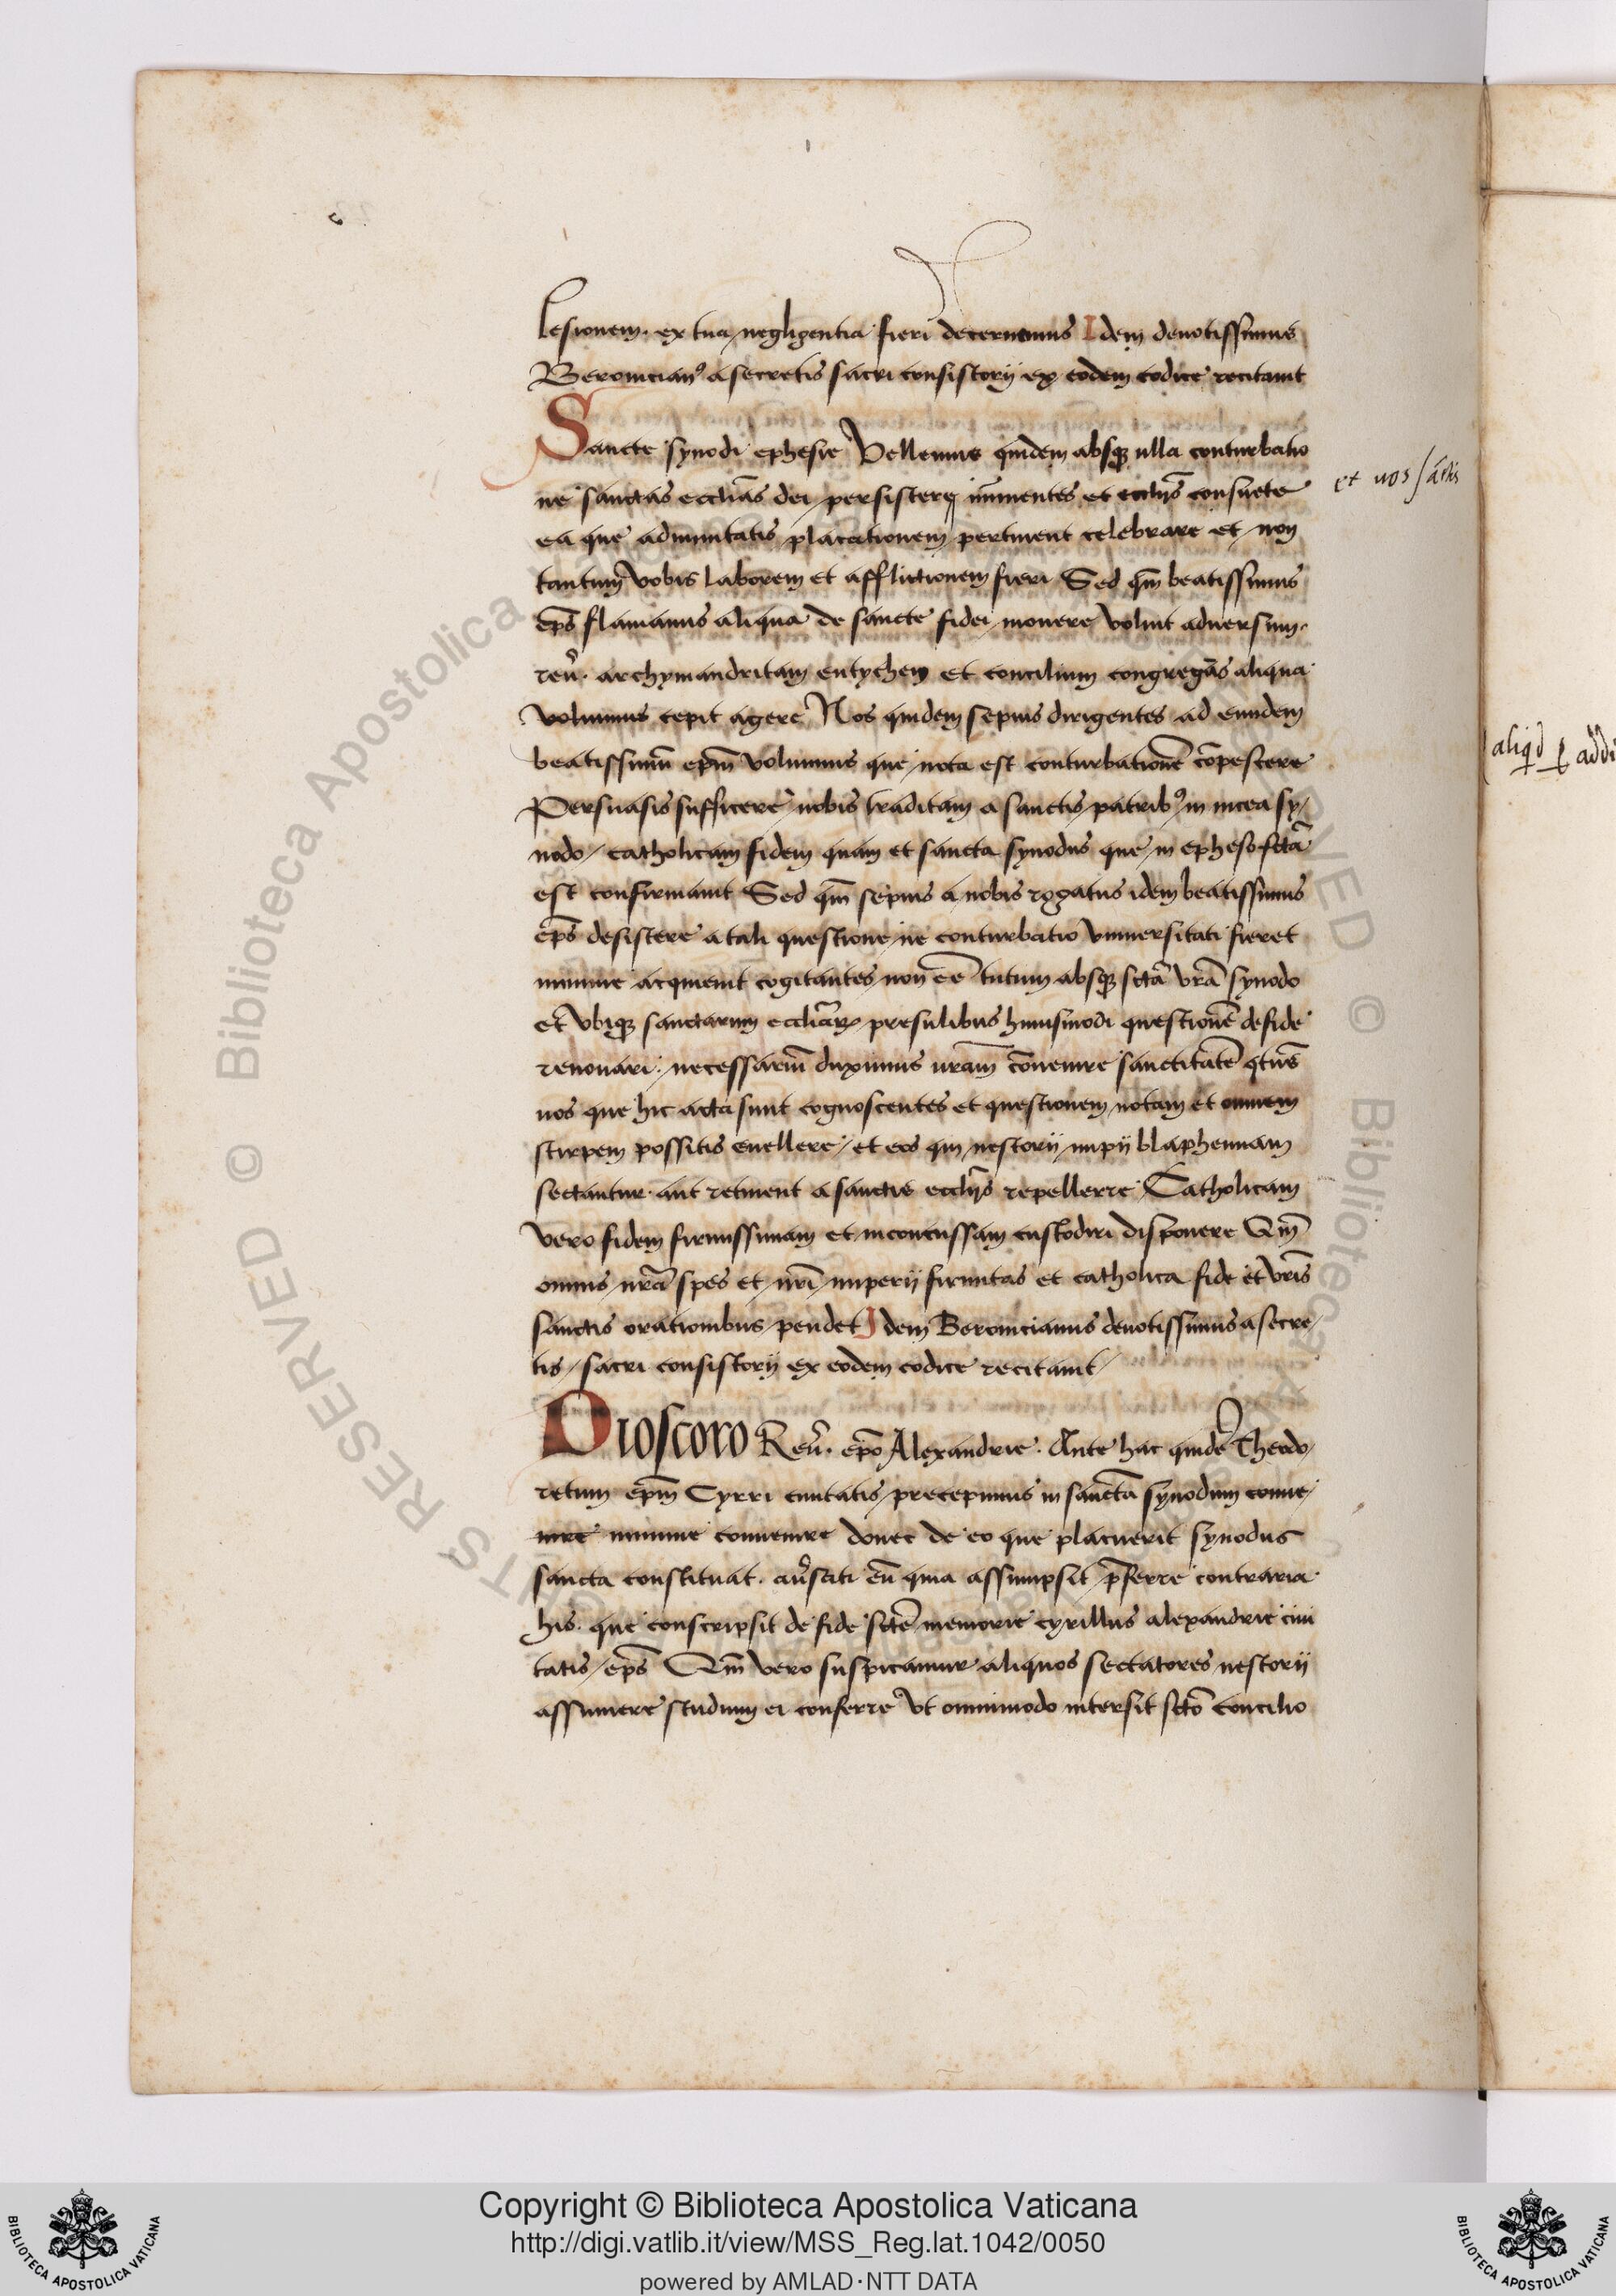 lesionem. ex tua negligentia fieri decernemus Idem deuotissimus
Beronician⁹ a secretis sacri consistorij ex eodem codice recitauit
Sancte synodi ephesie Vellemus quidem absqꝫ ulla conturbatio
ne sanctas eccl̄ias dei persistere īmientes et eccl̄ijs consuete
et uos sāctis
ea que ad unitatis placationem pertinent celebrare et non
tantum vobis laborem et afflictionem fieri Sed qm̄ beatissimus
ep̄s flauianus aliqua de sancte fidei mouere voluit aduersum.
reu̓. archymandritam eutychen et concilium congregās aliqua
volumus cepit agere Nos quidem sepius dirigentes ad eundem
beatissimū ep̄m volumus que nota est conturbationē cōpescere
Persuasis sufficere nobis traditam a sanctis patrib⁹ in nicea sy/
nodo catholicam fidem quam et sancta synodus que in epheso fctā
est confirmauit Sed qm̄ sepius a nobis rogatus idem beatissimus
ep̄s desistere a tali questione ne conturbatio vniuersitati fieret
minime acquieuit cogitantes non eē tutum absqꝫ sctā vrā synodo
et vbiqꝫ sanctarum eccliāꝝ presulibus huiusmodi questionē de fide
renouari. necessariū duximus urām cōuenire sanctitatē qtus̄
uos que hic acta sunt cognoscentes et questionem notam et omnem
stirpem possitis euellere et eos qui nestorij impij blaphemiam
sectantur. aut retinent a sanctis eccl̄ijs repellerre Catholicam
vero fidem firmissimam et inconcussam custodiri disponere Qm̄
omnis nrā spes et nrī imperij firmitas et catholica fide et vrīs
sanctis orationibus pendet Idem Beronicianus deuotissimus a secre/
tis sacri consistorij ex eodem codice recitauit
Dioscoro Reu̓. ep̄o Alexandrie. Ante hac quidē Theodo/
retum ep̄m Cyrri ciuitatis precepimus in sanctā synodum conue/
nire minime conuenire donec de eo que placuerit synodus
sancta constituat. au̓sati eū quia assumpsit p̄ferre contraria
his. que conscripsit de fide sctē memorie cyrillus alexandrie ciui
tatis ep̄s Qm̄ vero suspicamur aliquos sectatores nestorij
assumere studium ei conferre vt omnimodo intersit sctō concilio
aliqd
addi
Copyright © Biblioteca Apostolica Vaticana
http://digi.vatlib.it/view/MSS_Reg.lat.1042/0050
powered by AMLAD·NTT DATA
BIBLIOTECA APOSTOLICA VATICANA
BIBLIOTECA APOSTOLICA VATICANA